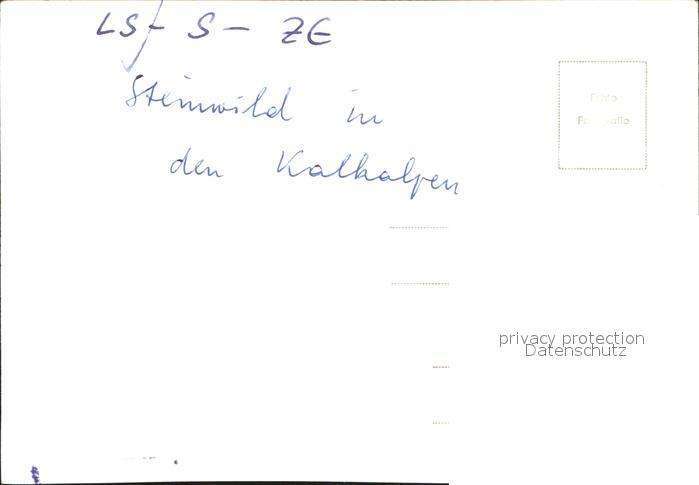 LS - S - ZE
Steinwild in
den Kalkalpen
Foto
privacy protection
Datenschutz